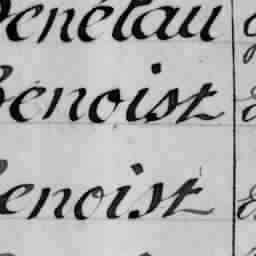 Penélau
Benoist
Benoist